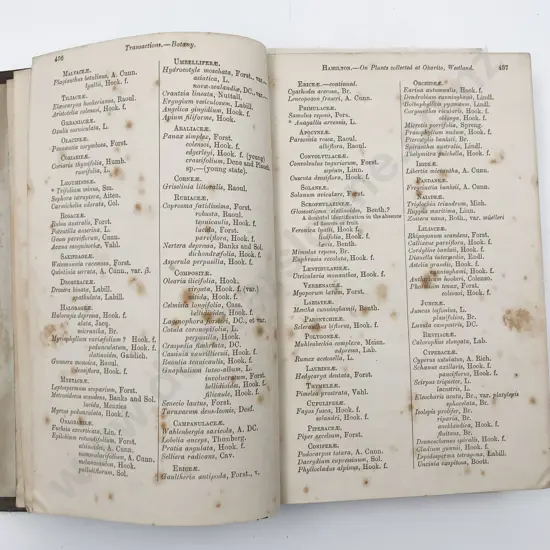 436
Transactions.—Botany.
MALVACEÆ.
Plagianthus betulinus, A. Cunn.
lyallii, Hook. f.
TILIACEÆ.
Elæocarpus hookerianus, Raoul.
Aristotelia colensoi, Hook. f.
GERANIACEÆ.
Oxalis corniculata, L.
OLACINEÆ.
Pennantia corymbosa, Forst.
CORIARIEÆ.
Coriaria thymifolia, Humb.
ruscifolia, L.
LEGUMINOSÆ.
* Trifolium minus, Sm.
Sophora tetraptera, Aiton.
Carmichælia odorata, Col.
ROSACEÆ.
Rubus australis, Forst.
Potentilla anserina, L.
Geum parviflorum, Comm.
Acæna sanguisorbæ, Vahl.
SAXIFRAGEÆ.
Weinmannia racemosa, Forst.
Quintinia serrata, A. Cunn., var. β.
DROSERACEÆ.
Drosera binata, Labill.
spathulata, Labill.
HALORAGEÆ.
Haloragis depressa, Hook. f.
alata, Jacq.
micrantha, Br.
Myriophyllum variæfolium ? Hook. f.
pedunculatum, Hook. f.
elatinoides, Gaudich.
Gunnera monoica, Raoul.
densiflora, Hook. f.
MYRTACEÆ.
Leptospermum scoparium, Forst.
Metrosideros scandens, Banks and Sol.
lucida, Menzies
Myrtus pedunculata, Hook. f.
ONAGRARIEÆ.
Fuchsia excorticata, Lin. f.
Epilobium rotundifolium, Forst.
alsinoides, A. Cunn.
nummularifolium, A. Cunn.
melanocaulon, Hook.
pallidiflorum, Sol.
UMBELLIFERÆ.
Hydrocotyle moschata, Forst., var.
asiatica, L.
novæ-zealandiæ, DC., var.
Crantzia lineata, Nuttall.
Eryngium vesiculosum, Labill.
Angelica gingidium, Hook. f.
Apium filiforme, Hook.
ARALIACEÆ.
Panax simplex, Forst.
colensoi, Hook. f.
edgerleyi, Hook. f. (young)
crassifolium, Dcne and Planch
sp.—(young state).
CORNEÆ.
Griselinia littoralis, Raoul.
RUBIACEÆ.
Coprosma fœtidissima, Forst.
robusta, Raoul.
tenuicaulis, Hook. f.
lucida, Forst.
parviflora, Hook. f.
Nertera depressa, Banks and Sol.
dichondræfolia, Hook. f.
Asperula perpusilla, Hook. f.
COMPOSITÆ.
Olearia ilicifolia, Hook. f.
virgata, Hook. f. (var.)
nitida, Hook. f.
Celmisia longifolia, Cass.
Hook. f.
Lagenophora forsteri, DC., et var.
Cotula coronopifolia, L.
perpusilla, Hook. f.
Craspedia fimbriata, DC.
Cassinia vauvilliersii, Hook. f.
Raoulia tenuicaulis, Hook. f.
Gnaphalium luteo-album, L.
involucratum, Forst.
bellidioides, Hook. f.
filicaule, Hook. f.
Senecio bellidioides, Hook. f.
Taraxacum dens-leonis, Desf.
CAMPANULACEÆ.
Wahlenbergia saxicola, A. DC.
Lobelia anceps, Thunberg.
Pratia angulata, Hook. f.
Selliera radicans, Cav.
ERICEÆ.
Gaultheria antipoda, Forst., v.
HAMILTON.—On Plants collected at Okarito, Westland.
437
ERICEÆ—continued.
Cyathodes acerosa, Br.
Leucopogon fraseri, A. Cunn.
PRIMULACEÆ.
Samolus repens, Pers.
* Anagallis arvensis, L.
APOCYNEÆ.
Parsonsia rosea, Raoul.
albiflora, Raoul.
CONVOLVULACEÆ.
Convolvulus tuguriorum, Forst.
sepium, Linn.
Cuscuta densiflora, Hook. f.
SOLANEÆ.
Solanum aviculare, Forst.
SCROPHULARINEÆ.
Glossostigma elatinoides, Benth.?
A doubtful identification in the absence
of flowers or fruit
Veronica lyallii, Hook. f.
lindfolia, Hook. f.
lævis, Benth.
Mimulus repens, Br.
Euphrasia revoluta, Hook. f.
LENTIBULARIEÆ.
Utricularia monanthos, Hook. f.
VERBENACEÆ.
Myoporum lætum, Forst.
LABIATÆ.
Mentha cunninghamii, Benth.
PARONYCHIEÆ.
Scleranthus biflorus, Hook. f.
POLYGONEÆ.
Muhlenbeckia complexa, Meisn.
adpressa, Lab.
Rumex acetosella, L.
LAURINEÆ.
Hedycarya dentata, Forst.
THYMELEÆ.
Pimelea prostrata, Vahl.
CUPULIFERÆ.
Fagus fusca, Hook. f.
solandri, Hook. f.
PIPERACEÆ.
Piper excelsum, Forst.
CONIFERÆ.
Podocarpus totara, A. Cunn.
Dacrydium cupressinum, Sol.
Phyllocladus alpinus, Hook. f.
ORCHIDEÆ.
Earina autumnalis, Hook. f.
Dendrobium cunninghamii, Lindl.
Bolbophyllum pygmæum, Lindl.
Corysanthes rivularis, Hook. f.
oblonga, Hook. f.
Microtis porrifolia, Spreng.
Prasophyllum nudum, Hook. f.
Pterostylis banksii, Br.
Spiranthes australis, Lindl.
Thelymitra pulchella, Hook. f.
IRIDEÆ.
Libertia micrantha, A. Cunn.
PANDANEÆ.
Freycinetia banksii, A. Cunn.
NAIADEÆ.
Triglochin triandrum, Mich.
Ruppia maritima, Linn.
Zostera nana, Roth., var. mülleri
LILIACEÆ.
Rhipogonum scandens, Forst.
Callixene parviflora, Hook. f.
Cordyline, Hook. f.
Dianella intermedia, Endl.
Astelia grandis, Hook. f.
cunninghamii, Hook. f.
Hook. f.
Arthropodium candidum, Raoul.
Phormium tenax, Forst.
colensoi, Hook. f.
JUNCEÆ.
Juncus bufonius, L.
planifolius, Br.
Luzula campestris, DC.
RESTIACEÆ.
Calorophus elongata, Lab.
CYPERACEÆ.
Cyperus ustulatus, A. Rich.
Schœnus axillaris, Hook. f.
pauciflorus, Hook. f.
Scirpus triqueter, L.
lacustris, L.
Eleocharis acuta, Br., var. platylepis
sphacelata, Br.
Isolepis prolifer, Br.
riparia, Br.
aucklandica, Hook. f.
fluitans, Br.
Desmoschœnus spiralis, Hook. f.
Gladium gunnii, Hook. f.
Lepidosperma tetragona, Labill.
Uncinia cæspitosa, Boott.